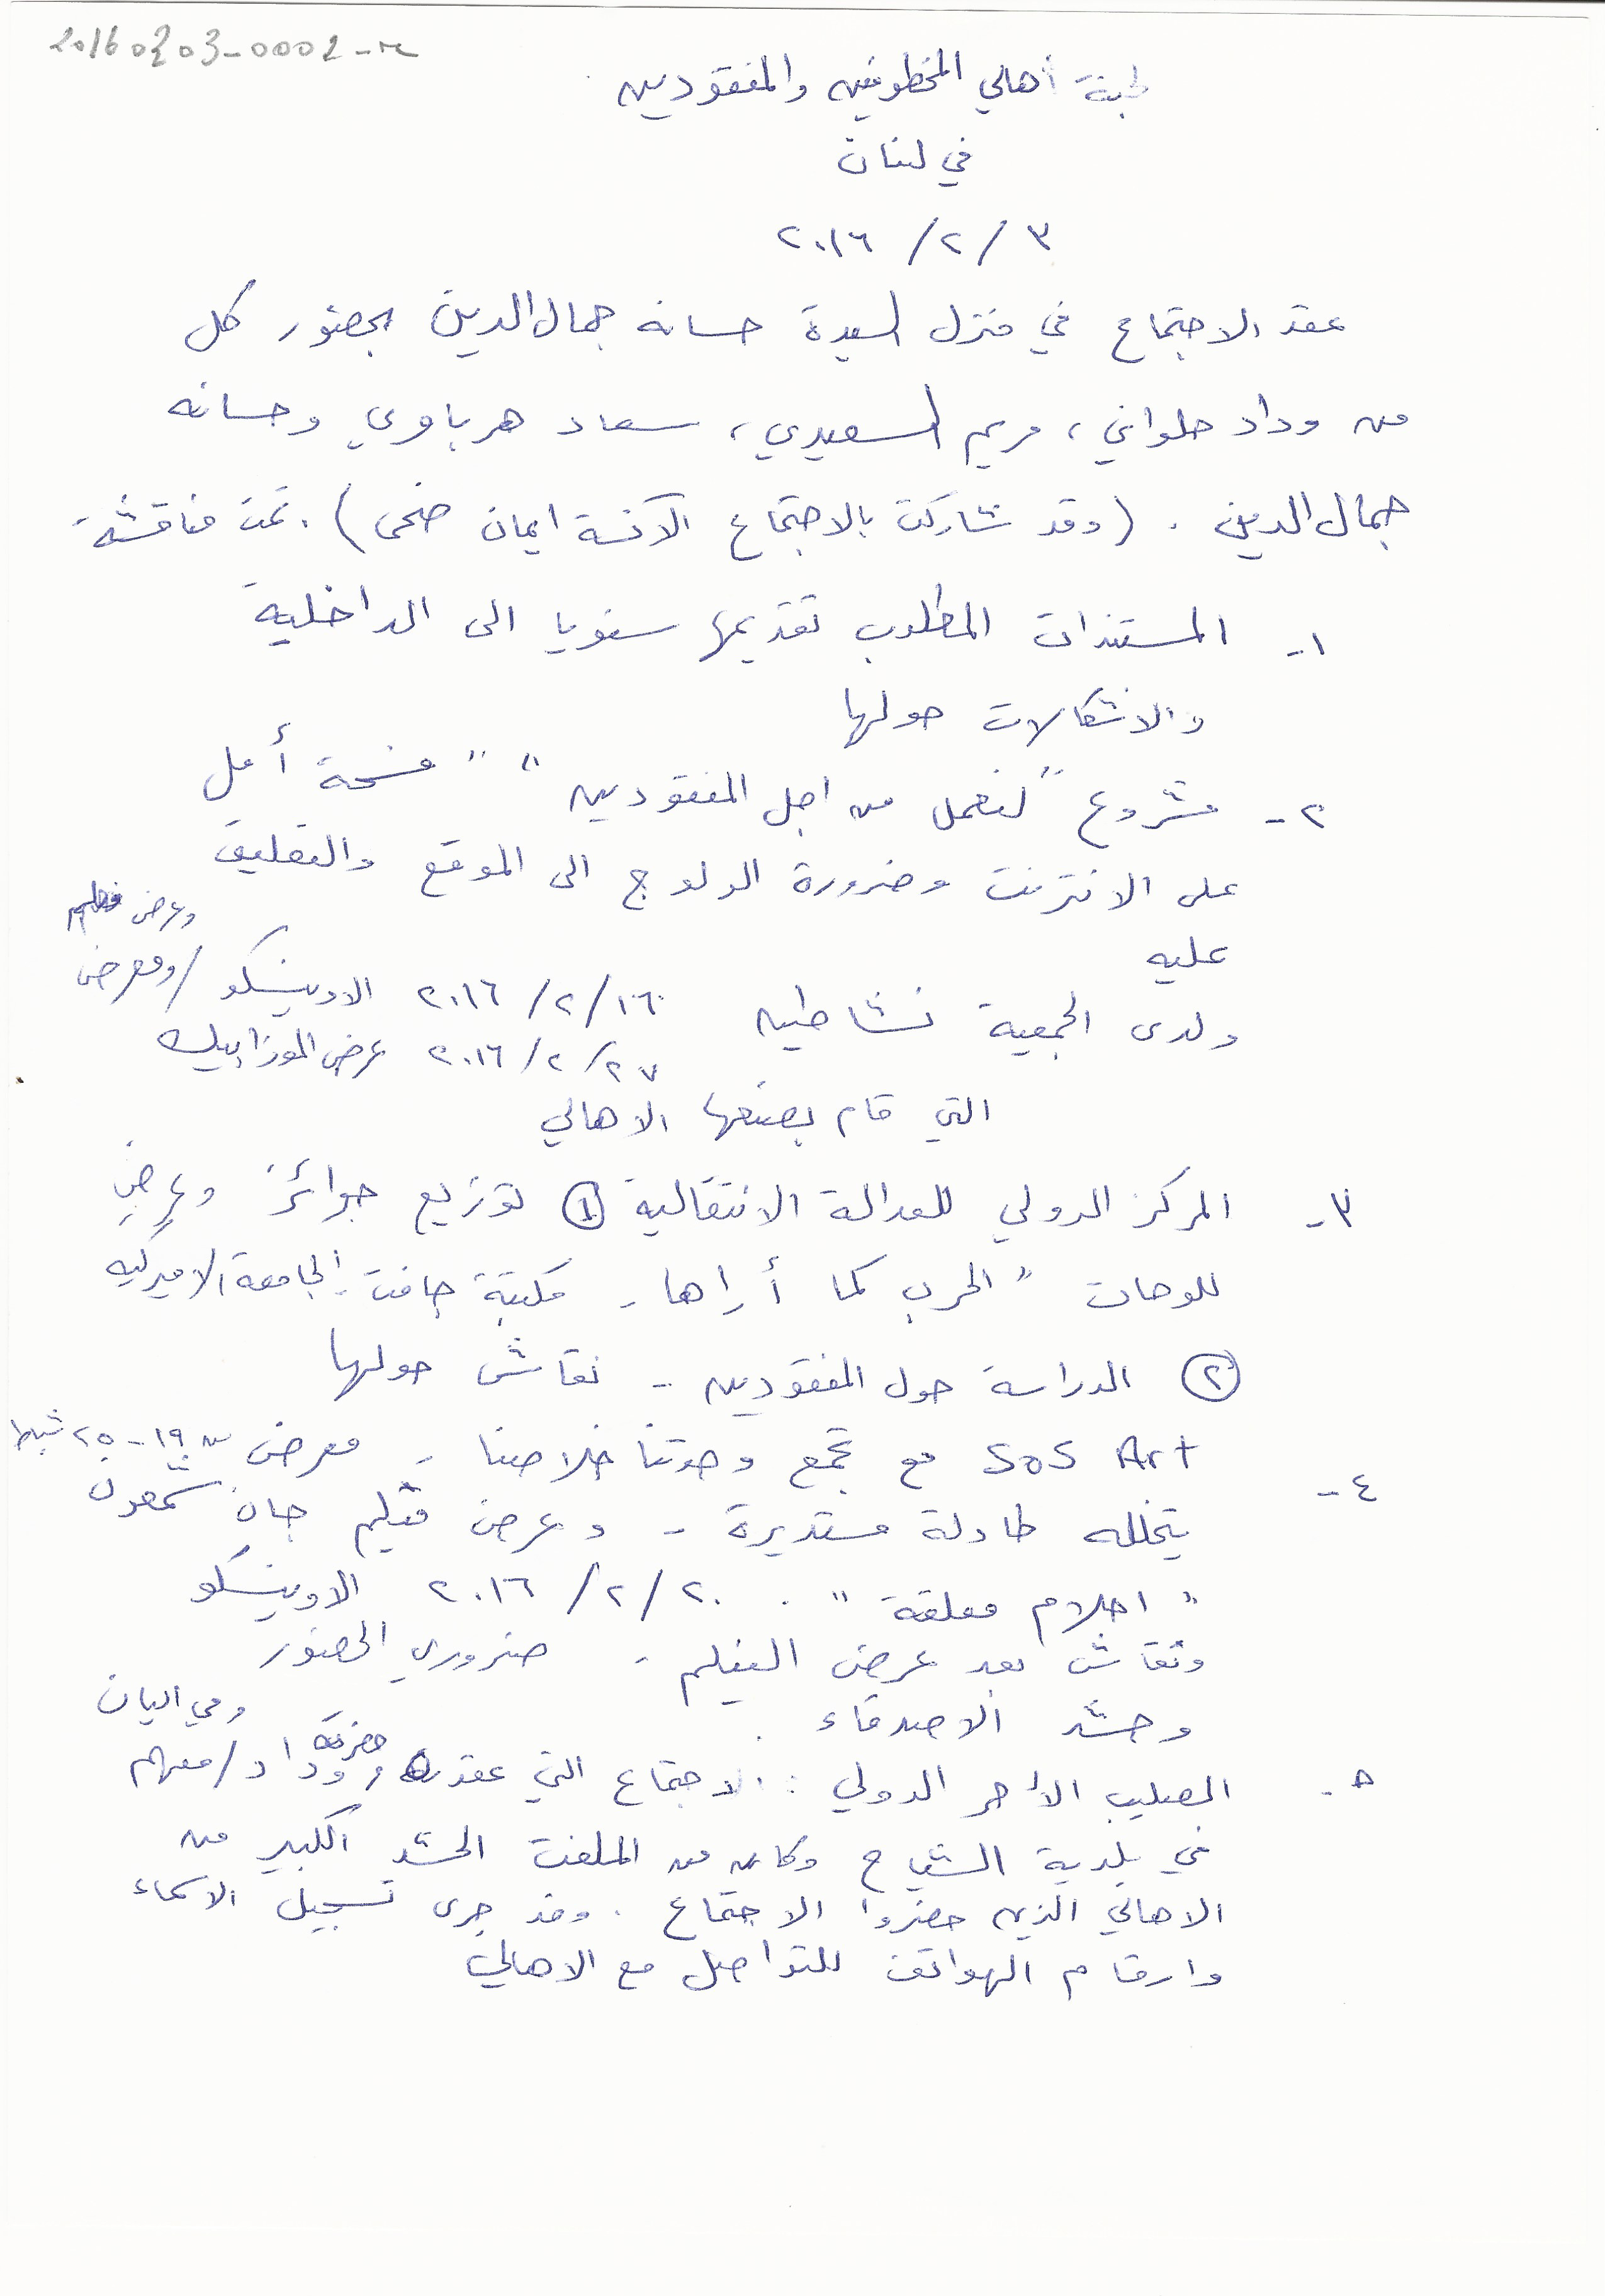 20160203-0002-م
لجنة أهالي المخطوفين والمفقودين
في لبنان
٣ / ٢ / ٢٠١٦
عقد الاجتماع في منزل السيدة حسانه جمال الدين بحضور كل
من وداد حلواني ، مريم السعيدي ، سعاد هرباوي وحسانه
جمال الدين . (وقد شاركت بالاجتماع الآنسة ايمان ضحى) . تمت مناقشة
١- المستندات المطلوب تقديمها سنويا الى الداخلية
والاشكالات حولها
٢- مشروع "لنعمل من اجل المفقودين" "فسحة أمل
على الانترنت وضرورة الولوج الى الموقع والتعليق
عليه
ولدى الجمعية نشاطين ١٦/٢/٢٠١٦ الاونيسكو /ومعرض وعرض فيلم
٢٧/٢/٢٠١٦ عرض الموزاييك
التي قام بصنعها الأهالي
٣- المركز الدولي للعدالة الانتقالية ① توزيع جوائز وعرض
للوحات "الحرب كما أراها - مكتبة جافت - الجامعة الاميركيه
② الدراسة حول المفقودين - نقاش حولها
٤- SOS Art مع تجمع وحدتنا خلاصنا - معرض من ١٩-٢٥ شباط
يتخلله طاولة مستديرة - وعرض فيلم جان شمعون
" احلام معلقة " . ٢٠/٢/٢٠١٦ الاونيسكو
ونقاش بعد عرض الفيلم . ضروري الحضور
وحشد الأصدقاء .
٥- الصليب الأحمر الدولي : الاجتماع التي حضرته وداد /معهم
في بلدية الشياح وكان من الملفت الحشد الكبير من
الاهالي الذين حضروا الاجتماع . وقد جرى تسجيل الاسماء
وارقام الهواتف للتواصل مع الاهالي